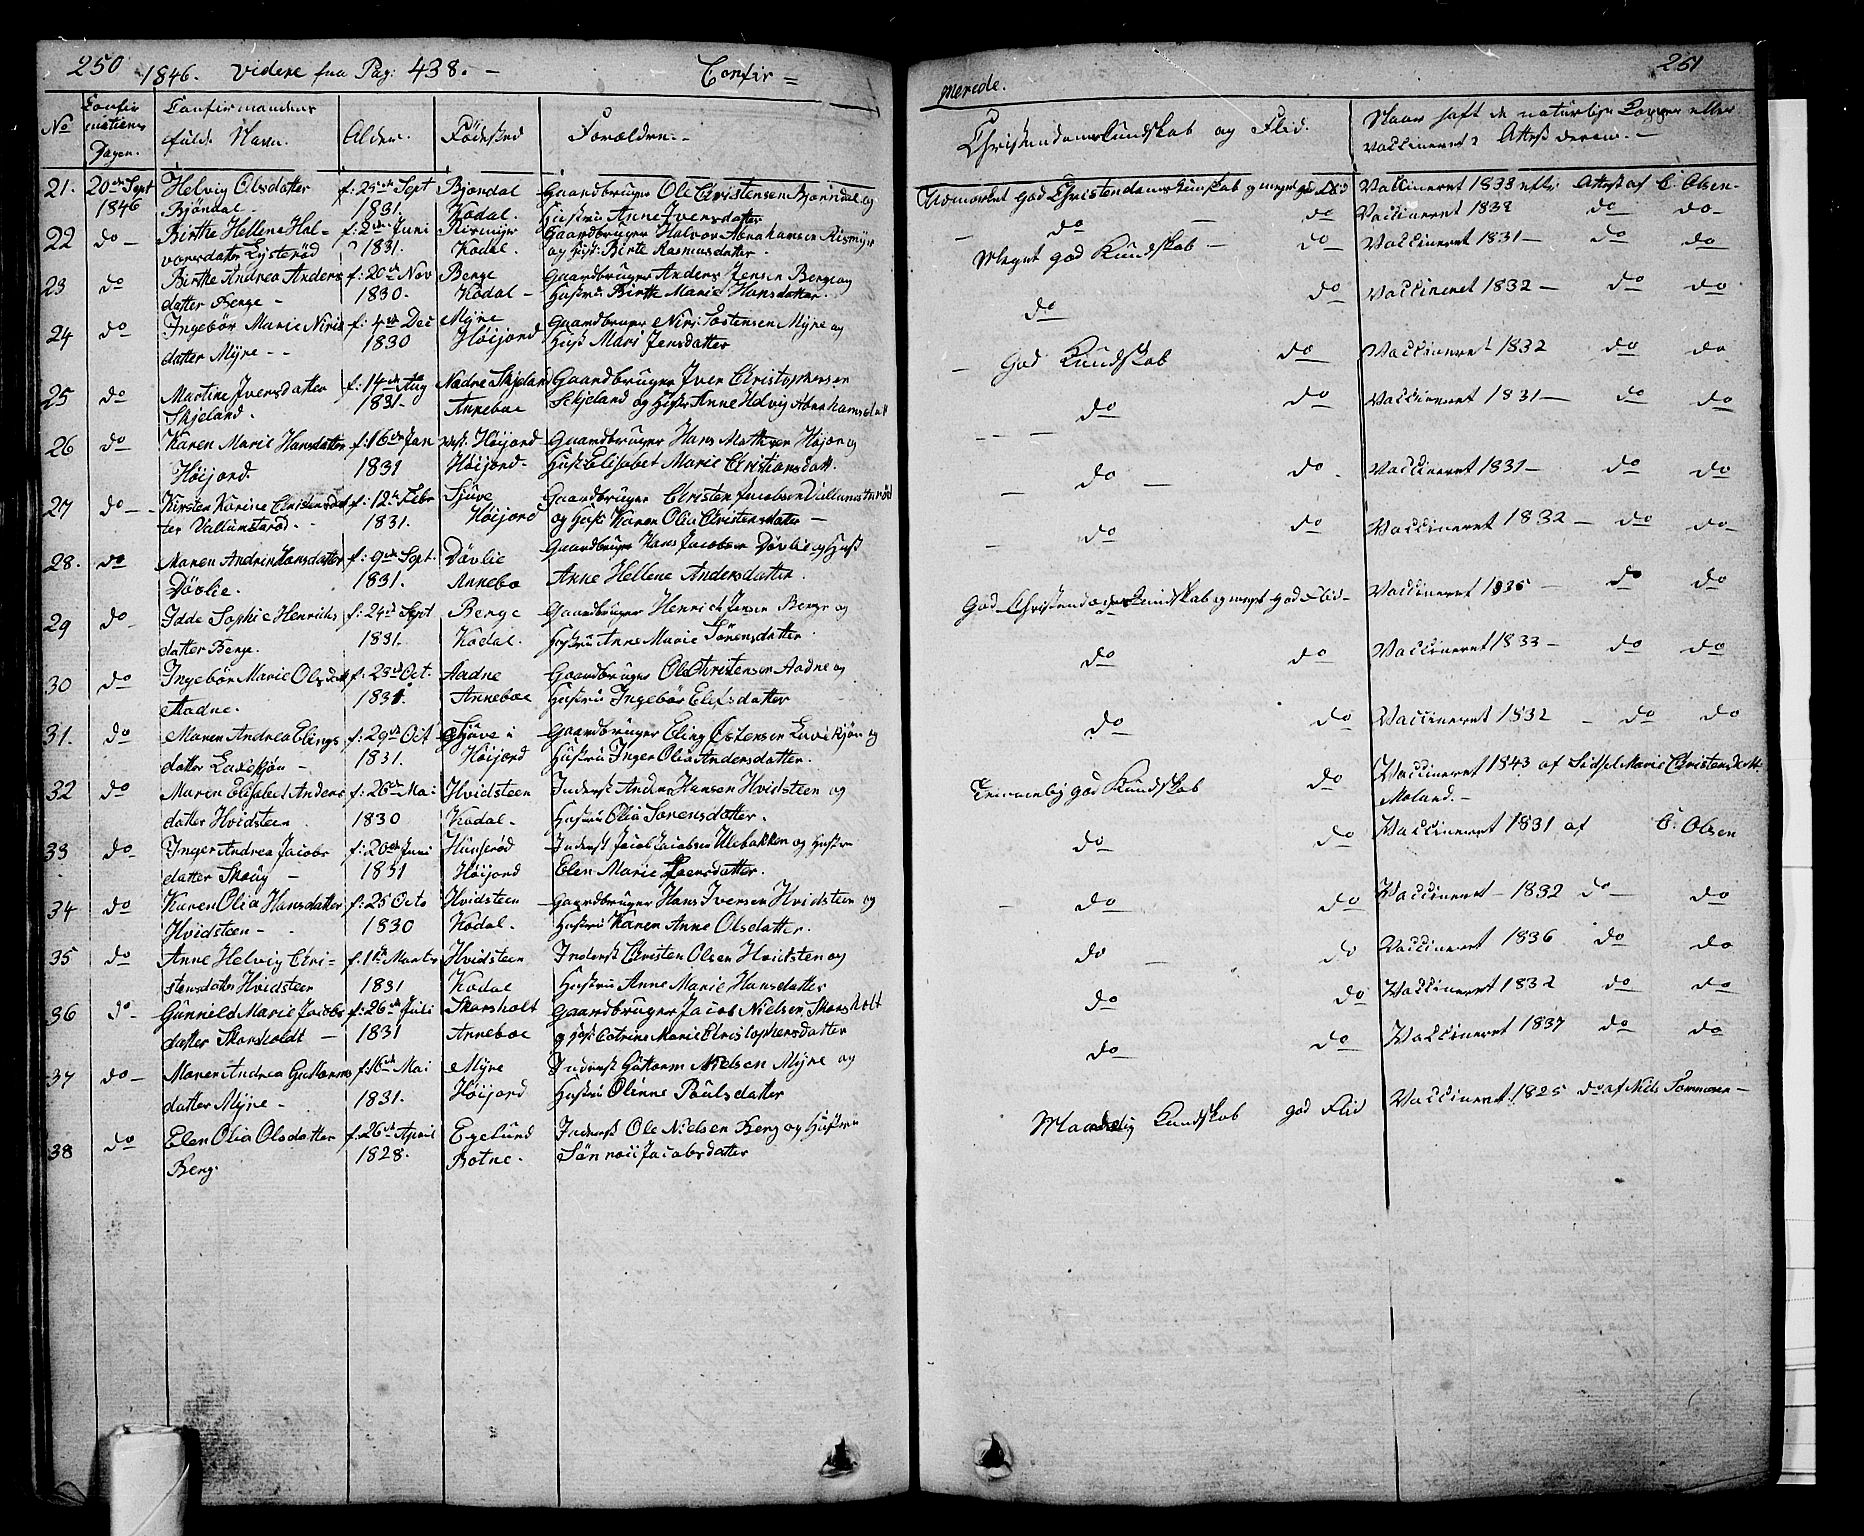 250 1846. Videre fra Pag: 438. — Confir =
No
Confir
mations
Dagen.
Confirmandens
fulde Navn.
Alder.
Födested
Forældre.
21. 20de Sept Helvig Olsdatter f: 25de Sept Bjöndal Gaardbruger Ole Christensen Bjöndal og
1846 Bjöndal — 1831. Kodal. Hustru Anne Iversdatter
22 do — Birthe Hellene Hal- f: 2den Juni Rismyr Gaardbruger Halvor Abrahamsen Rismyr
vorsdatter Lysteröd 1831. Kodal og Hust: Birte Rasmusdatter.
23 do Birthe Andrea Anders f: 20de Nov Berge Gaardbruger Anders Jensen Berge og
datter Berge — 1830. Kodal — Hustru Birthe Marie Hansdatter.
24 do Ingebör Marie Niris f: 4de Dec Myre Gaardbruger Niri Tostensen Myre og
datter Myre — 1830 Höijord Hust Mari Jensdatter
25 do Martine Iversdatter f: 14de Aug Nadre Skjeland Gaardbruger Iver Christophersen
Skjeland. 1831. Anneboe Skjeland og Hust: Anne Helvig Abrahamsdat
26 do Karen Marie Hansdatter f: 16de Jan vest: Höijord Gaardbruger Hans Mathisen Höjor og
Höijord. 1831 Höijord. Hust Elisabet Marie Christiansdatt.
27 do — Kirsten Karine Christensdat f: 12te Febr Sjuve Gaardbruger Christen Jacobsen Vallumsteröd
ter Vallumsteröd. 1831. Höijord og Hust Karen Olia Christensdatter —
28. do Maren Andrin Hansdatter f: 9de Sept. Dövlie Gaardbruger Hans Jacobsen Dövlie og Hust
Dövlie. 1831. Annebo Anne Hellene Andersdatter.
29 do Idde Sophie Henrichs f: 24de Sept Berge Gaardbruger Henrich Jensen Berge og
datter Berge. 1831. Kodal. Hustru Anne Marie Sörensdatter.
30 do Ingebör Marie Olsdatt f: 23de Oct. Aadne Gaardbruger Ole Christensen Aadne og
Aadne. 1831. Anneboe Hustru Ingebör Elefsdatter
31. do Maren Andrea Elings f: 29de Oct Sjuve i Gaardbruger Eling Östensen Laxeskjön og
datter Laxeskjön — 1831. Höijord Hustru Inger Olia Andersdatter.
32 do Maren Elisabet Anders f: 26de Mai Hvidsteen Inderst Anders Hansen Hvidsteen og
datter Hvidsteen 1830 Kodal. Hustru Olia Sörensdatter.
33 do Inger Andrea Jacobs f: 20de Juni Hunseröd Inderst Jacob Jacobsen Ulebakken og Hustru
datter Skoug — 1831 Höijord Elen Marie datter.
34 do Karen Olia Hansdatter f: 25 Octo Hvidsteen Gaardbruger Hans Iversen Hvidsteen og
Hvidsteen — 1830 Kodal. Hustru Karen Anne Olsdatter.
35 do Anne Helvig Chri- f: 1te Marts Hvidsteen Inderst Christen Olsen Hvidsten og
stensdatter Hvidsteen 1831 Kodal Hustru Anne Marie Hansdatter
36 do Gunnild Marie Jacobs f: 26de Juli Skorsholt Gaardbruger Jacob Nielsen Skorsholt
datter Skorsholdt — 1831 Anneboe og Hust Catrine Marie Christophersdatter
37 do — Maren Andrea Guttorms f: 16de Mai Myre Inderst Guttorm Nielsen Myre og
datter Myre — 1831. Höijord Hustru Olinne Poulsdatter
38 do Elen Olia Olsdatter f: 26de April Egelund Inderst Ole Nielsen Berg og Hustru
Berg. 1828. Botne. Jacobsdatter
merede. 251
Christendomskundskab og Flid.
Naar haft de naturlige Kopper eller
vaccineret? Attest derom. —
Udmærket god Christendomskundskab og meget god Flid Vaccineret 1833 efter Attest af C. Olsen —
do do Vaccineret 1832 do do
Meget god Kundskab — do Vaccineret 1831 — do do
do do Vaccineret 1832 — do do
God Kundskab do Vaccineret 1832 do do
do do Vaccineret 1831 — do do
do — do Vaccineret 1831 — do do
do do Vaccineret 1832 — do do
God Christendomskundskab og meget god Flid — Vaccineret 1835 — do do
do do Vaccineret 1833 — do do
do do Vaccineret 1832 — do do
Temmelig god Kundskab do Vaccineret 1843 af Sidsel Marie Christensdatt.
Moland. —
do do Vaccineret 1831 af C. Olsen
do do Vaccineret — 1832 do — do
do do Vaccineret 1836 do do
do do Vaccineret 1832 do do
do do Vaccineret 1837 do do
Maadelig Kundskab god Flid Vaccineret 1825 do af Niels —